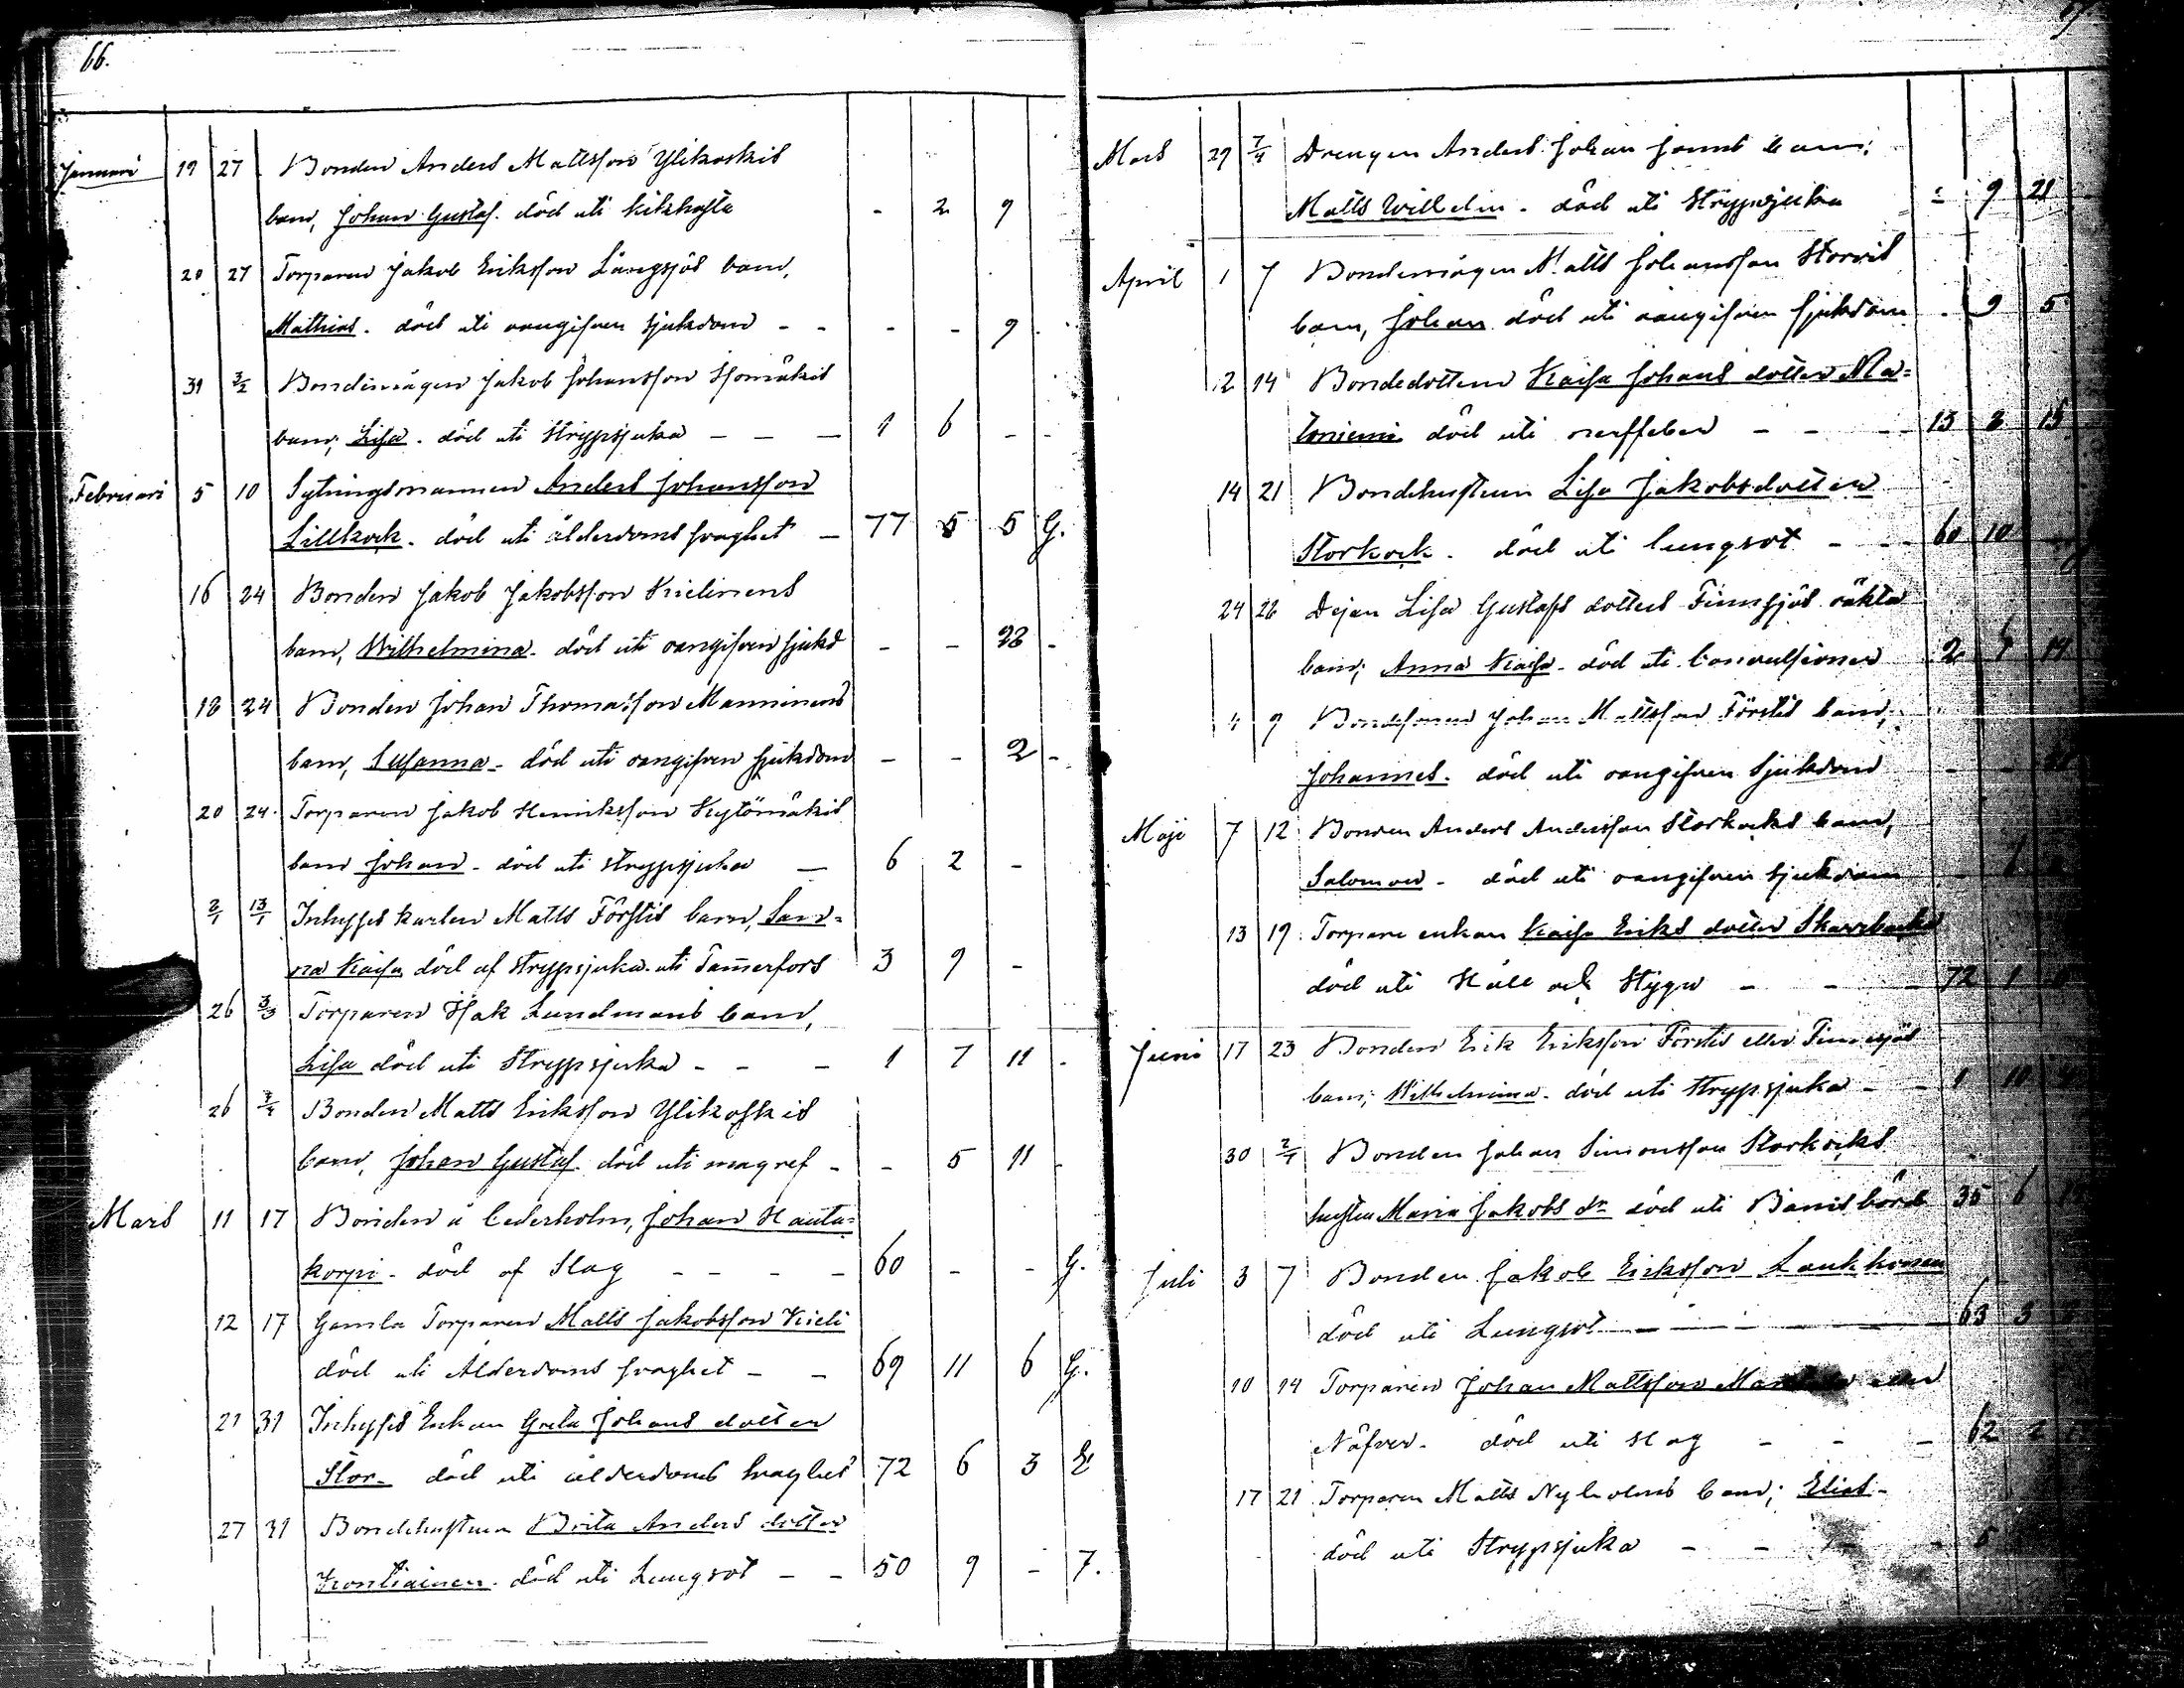 66.
Januari 19 27 Bonden Anders Mattsson Ylikoskis
barn, Johan Gustaf. död uti kikhosta - 2 9
20 27 Torparen Jakob Eriksson Långsjös barn,
Mathias. död uti oangifven sjukdom - - - - 9
31 3/2 Bondemågen Jakob Johansson
barn, Lisa. död uti Strypsjuka - - - 1 6 - -
Februari 5 10 Sytningsmannen Anders Johansson
Lillkock. död uti ålderdoms svaghet - 77 5 5 G.
16 24 Bonden Jakob Jakobsson Kielinens
barn, Wilhelmina. död uti oangifven sjukd - - 28 -
18 24 Bonden Johan Thomasson Manninens
barn, Susanna. död uti oangifven sjukdom - - 2 -
20 24. Torparen Jakob Henriksson Kytömäkis
barn Johan. död uti strypsjuka - 6 2 -
2/1 13/1 Inhyses karlen Matts Förstis barn, San-
na Kaisa död af strypsjuka uti Tam̄erfors 3 9 -
26 3/3 Torparen Isak Lundmans barn,
Lisa död uti Strypsjuka - - - 1 7 11 -
26 Bonden Matts Eriksson Ylikoskis
barn, Johan Gustaf. död uti magref - - 5 11
Mars 11 17 Bonden å Cederholm, Johan Hauta-
korpi. död af Slag - - - - 60 - - G.
12 17 Gamla Torparen Matts Jakobsson Kieli
död uti Ålderdoms svaghet - - 69 11 6 G.
21 31 Inhyses Enkan Greta Johans dotter
Stor. död uti ålderdoms svaghet 72 6 3 E
27 31 Bondehustrun Brita Anders dotter
Kontiainen. död uti Lungsot - - 50 9 - 7.
Mars 29 7/4 Drengen Anders Johan barn;
Matts Wilhelm. död uti Strypsjuka - 9 21
April 1 7 Bondemågen Matts Johansson Storvis
barn, Johan. död uti oangifven sjukdom - 9 5
12 14 Bondedottren Kaisa Johans dotter Ma-
toniemi död uti nerffeber - - - 13 8 15
14 21 Bondehustrun Lisa Jakobsdotter
Storkock. död uti lungsot - - 60 10 -
24 28 Dejan Lisa Gustafs dotters Finnsjös oäkta
barn; Anna Kaisa. död uti Convulsioner 2 14
4 9 Bondesonen Johan Mattsson Förstis barn,
Johannes. död uti oangifven Sjukdom - -
Maji 7 12 Bonden Anders Andersson Storkocks barn,
Salomon. död uti oangifven sjukdom
13 19 Torpare enkan Kaisa Eriks dotter Skarrbacka
död uti Håll och Stygn - - - 72 1
Juni 17 23 Bonden Erik Eriksson Förstis eller Finnsjös
barn; Wilhelmina. död uti Strypsjuka - - 1
30 Bonden Johan Simonsson Storkocks
hustru Maria Jakobs dr död uti Barnsbörd 35 6
Juli 3 7 Bonden Jakob Eriksson Laukkonen
död uti Lungsot - 63 3
10 14 Torparen Johan Mattsson eller
Näfver. död uti Slag - - - 62 2
17 21 Torparen Matts Nyholms barn; Elias.
död uti Strypsjuka - - -